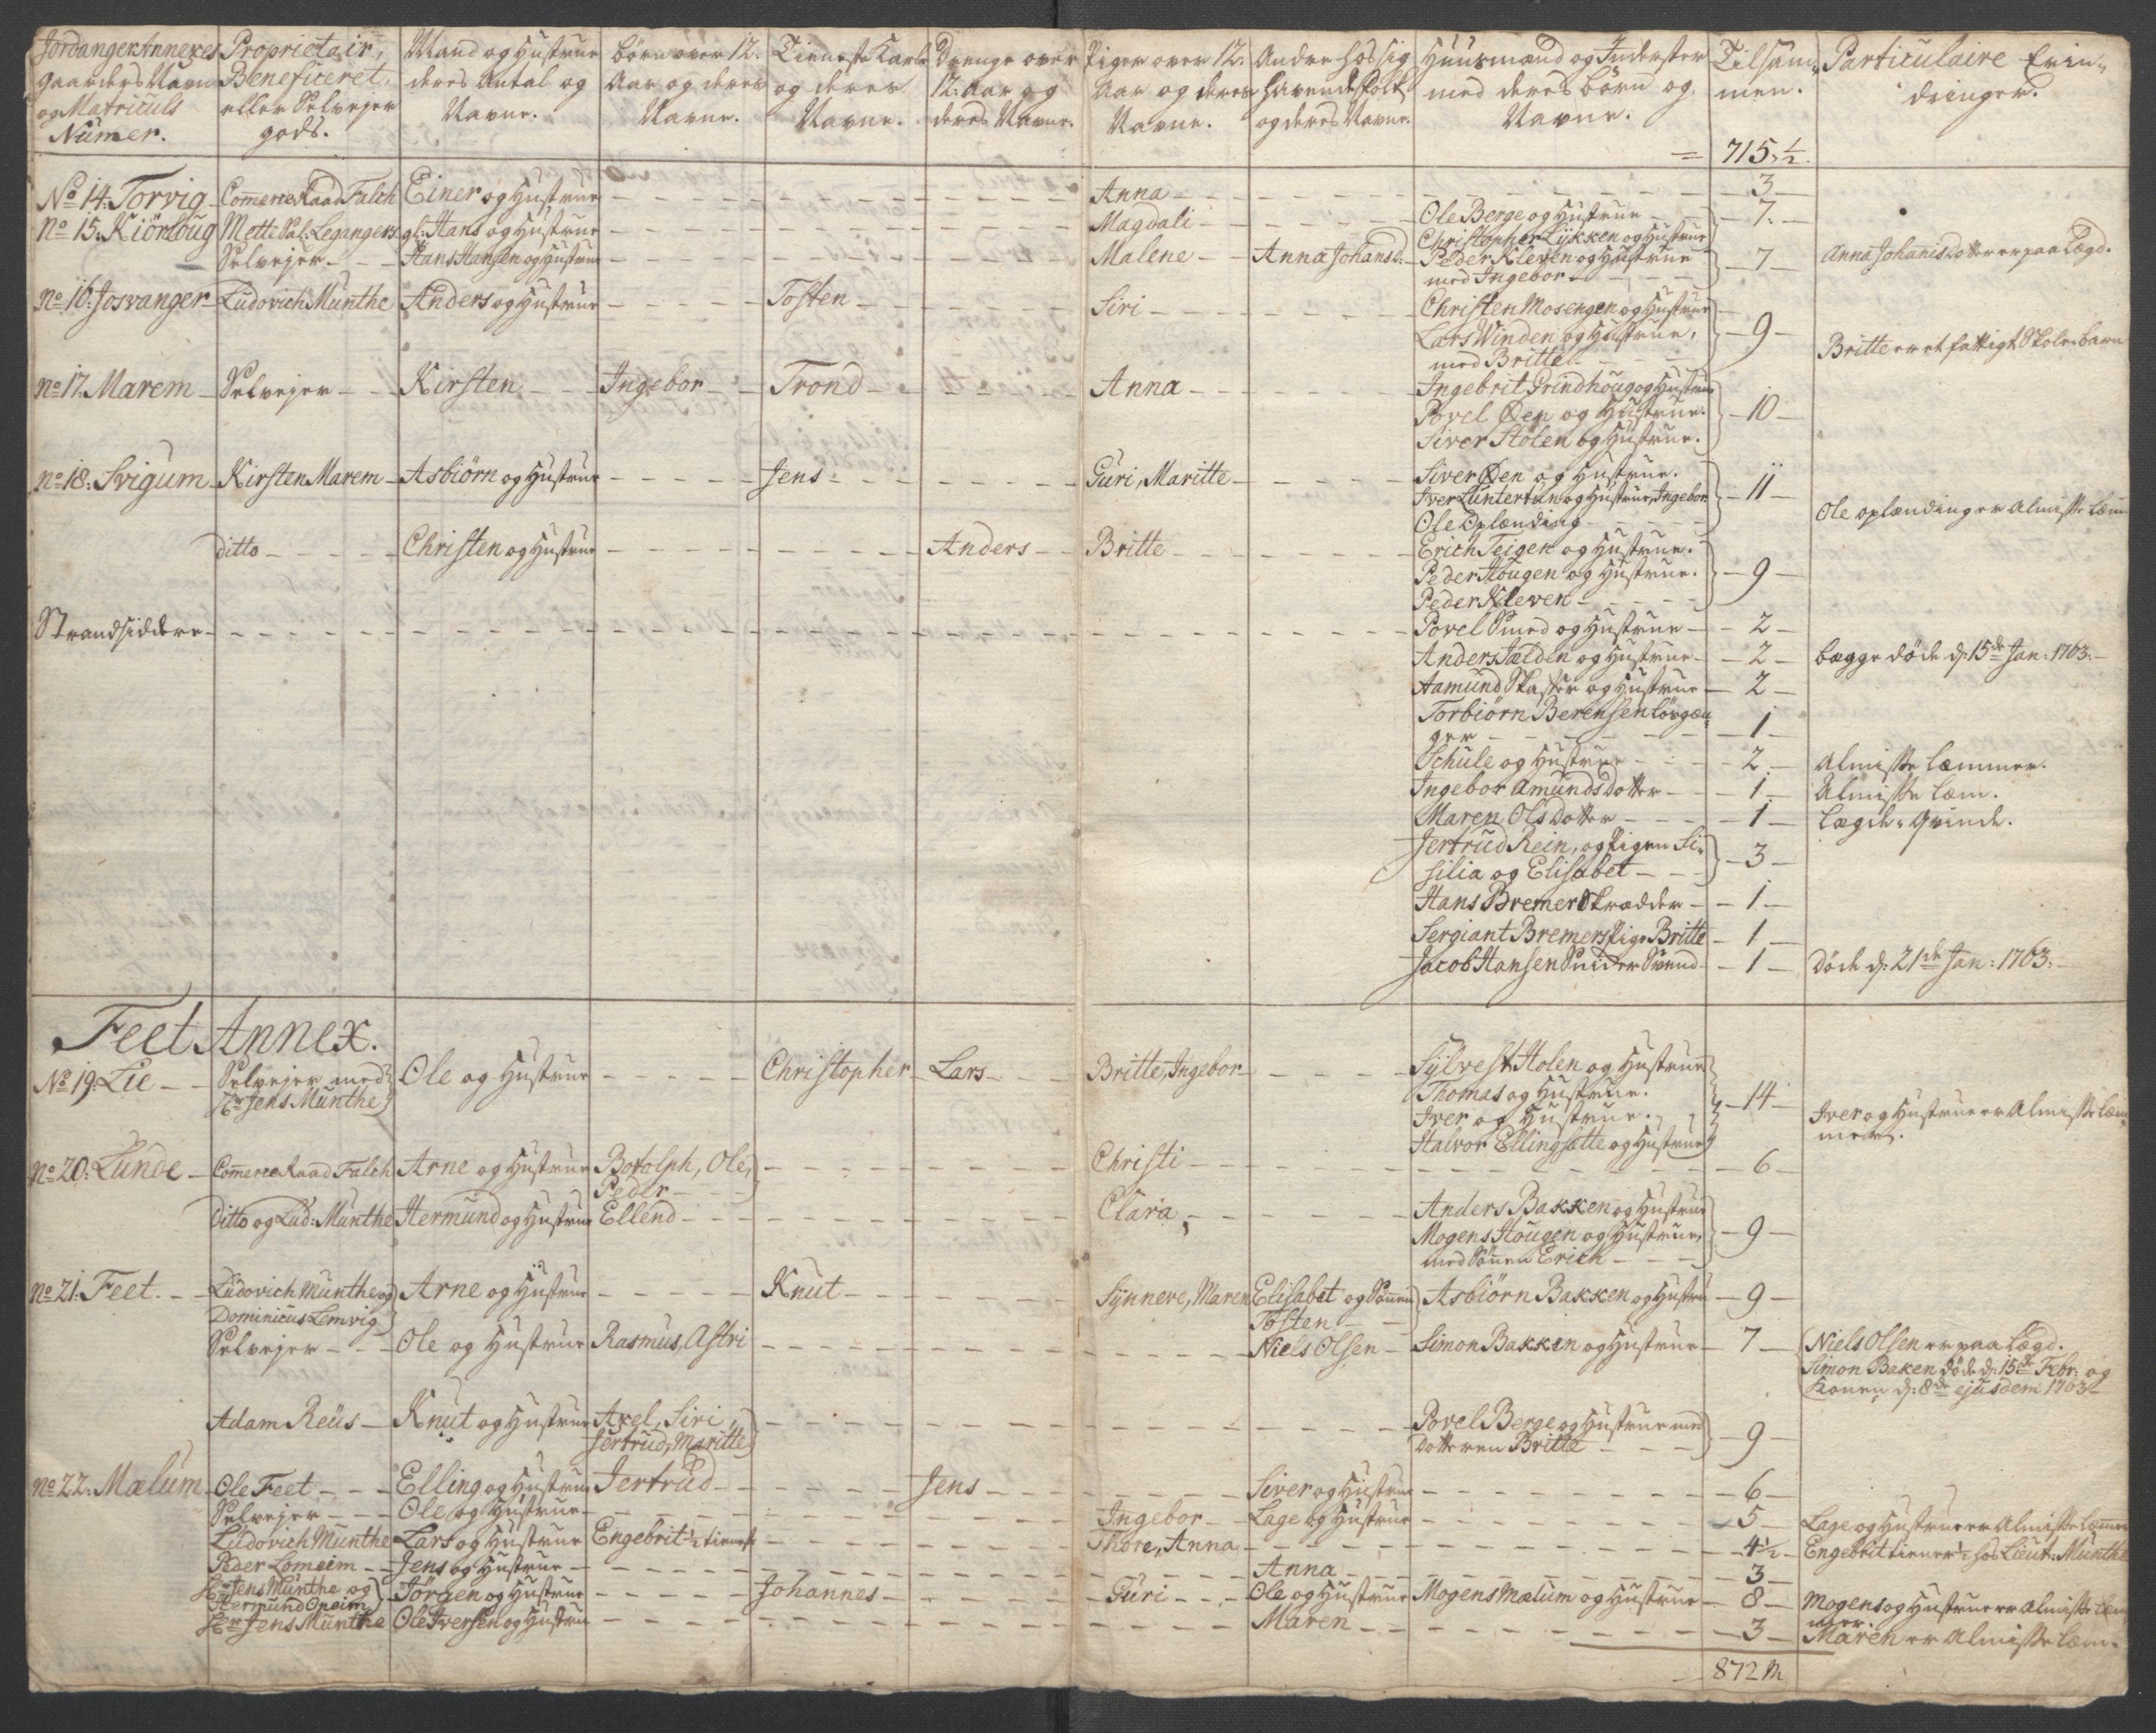 Jordanger Annexes Gaarders Navn og Matriculs Numer.
Proprietair, Beneficeret, eller Selvejer gods.
Mand og Hustrue deres Antal og Navne.
börn over 12. Aar og deres Navne.
Tieneste Karle og deres Navne.
Drenge over 12. Aar og deres Navne.
Piger over 12. Aar og deres Navne.
Andre hos sig havende Folk og deres Navne.
Huusmænd og Inderster med deres börn og Navne.
Tilsammen.
Particulaire Erindringer.
= 715, ½.
No 14: Torvig - Com̄erce Raad Falch Einer og Hustrue - Anna - 3
No 15: Kiörloug Mette Sal: Legangers gl: Hans og Hustrue - Magdali - Ole Berge og Hustrue - 7.
Christopher Lykken og Hustrue
Selvejer - Hans Hansen og Hustrue - Malene - Anna Johansd: - Peder Kleven og Hustrue - 7 - Anna Johanisdotter er paa Lægd.
med Ingebor
No 16: Josvanger - Ludovich Munthe Anders og Hustrue - Tosten - Siri - Christen Mosengen og Hustrue
Lars Winden og Hustrue, - 9 - Britte er et fattigt Skole-barn
med Britte
No 17: Marem - Selvejer - Kirsten - Ingebor - Trond - Anna - Ingebrit Grindhoug og Hustrue
Povel Øen og Hustrue. - 10
Siver Stölen og Hustrue.
No 18: Svigum - Kirsten Marem - Asbiörn og Hustrue - Jens - Guri, Maritte - Siver Øen og Hustrue.
Iver Luntertun og Hustrue, Ingebor - 11
Ole Oplænding - Ole oplænding er Almisse Læm
ditto - Christen og Hustrue - Anders - Britte - Erich Teigen og Hustrue.
Peder Hougen og Hustrue. - 9
Peder Kleven
Strandsiddere - Povel Smed og Hustrue - 2
Anders Jælden og Hustrue - 2 - begge döde d: 15de Jan: 1763.
Aamund Skaster og Hustrue - 2
Torbiörn Berensen Lösgæn-
ger - 1
Schule og Hustrue - 2 - Almisse Læmmer.
Ingebor Amundsdotter - 1 - Almisse Læm.
Maren Olsdotter - 1 - Lægde-Qvinde.
Jertrud Rein, og Pigen Si-
silia og Elisabet - 3
Hans Bremer Skrædder - 1
Sergiant Bremers Pige Britte - 1
Jacob Hansen Snider Svend - 1 - döde d: 21de Jan: 1763.
Feet Annex.
No 19: Lie - Selvejer med Hr Jens Munthe Ole og Hustrue - Christopher - Lars - Britte, Ingebor - Sylvest Holen og Hustrue
Thomas og Hustrue. - 14
Iver og Hustrue. - Iver og Hustrue er Almisse Læm-
mer.
Halvor Ellingsætte og Hustrue
No 20: Lunde - Com̄erce Raad Falch Arne og Hustrue Botolph, Ole, Peder - Christi - 6
Ditto og Lud: Munthe Hermund og Hustrue Ellend - Clara, - Anders Bakken og Hustrue
Mogens Hougen og Hustrue, - 9
med Sönnen Erich
No 21: Feet. - Ludovich Munthe og Dominicus Lemvig Arne og Hustrue - Knut - Synneve, Maren Elisabet og Sönnen Tosten - Asbiörn Bakken og Hustru - 9
Selvejer - Ole og Hustrue Rasmus, Astri - Niels Olsen - Simon Bakken og Hustrue - 7 - Niels Olsen er paa Lægd.
Simon Baken döde d: 15de Febr: og
Konen d: 8de ejusdem 1763
Adam Reüs - Knut og Hustrue Axel, Siri, Jertrud, Maritte - Povel Berge og Hustrue med
Dotteren Britte - 9
No 22: Mælum - Ole Feet - Elling og Hustrue Jertrud - Jens - Siver og Hustrue - 6
Selvejer - Ole og Hustrue - Ingebor - Lage og Hustrue - 5 - Lage og Hustrue er Almisse Læmmer
Ludovich Munthe Lars og Hustrue Engebrit ½ tieneste - Thore, Anna - 4½ - Engebrit tiener ½ hos Lieut: Munthe
Peder Lomeim - Jens og Hustrue - Anna - 3
Hr Jens Munthe og Hermund Opeim Jörgen og Hustrue - Johannes - Guri - Ole og Hustrue Mogens Mælum og Hustrue - 8 - Mogens og Hustrue er Almisse Læm
mer.
Hr Jens Munthe Ole Iversen og Hustru - Maren - 3 - Maren er Almisse Læm.
872